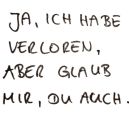 JA, ICH HABE
VERLOREN,
ABER GLAUB
MIR, DU AUCH.